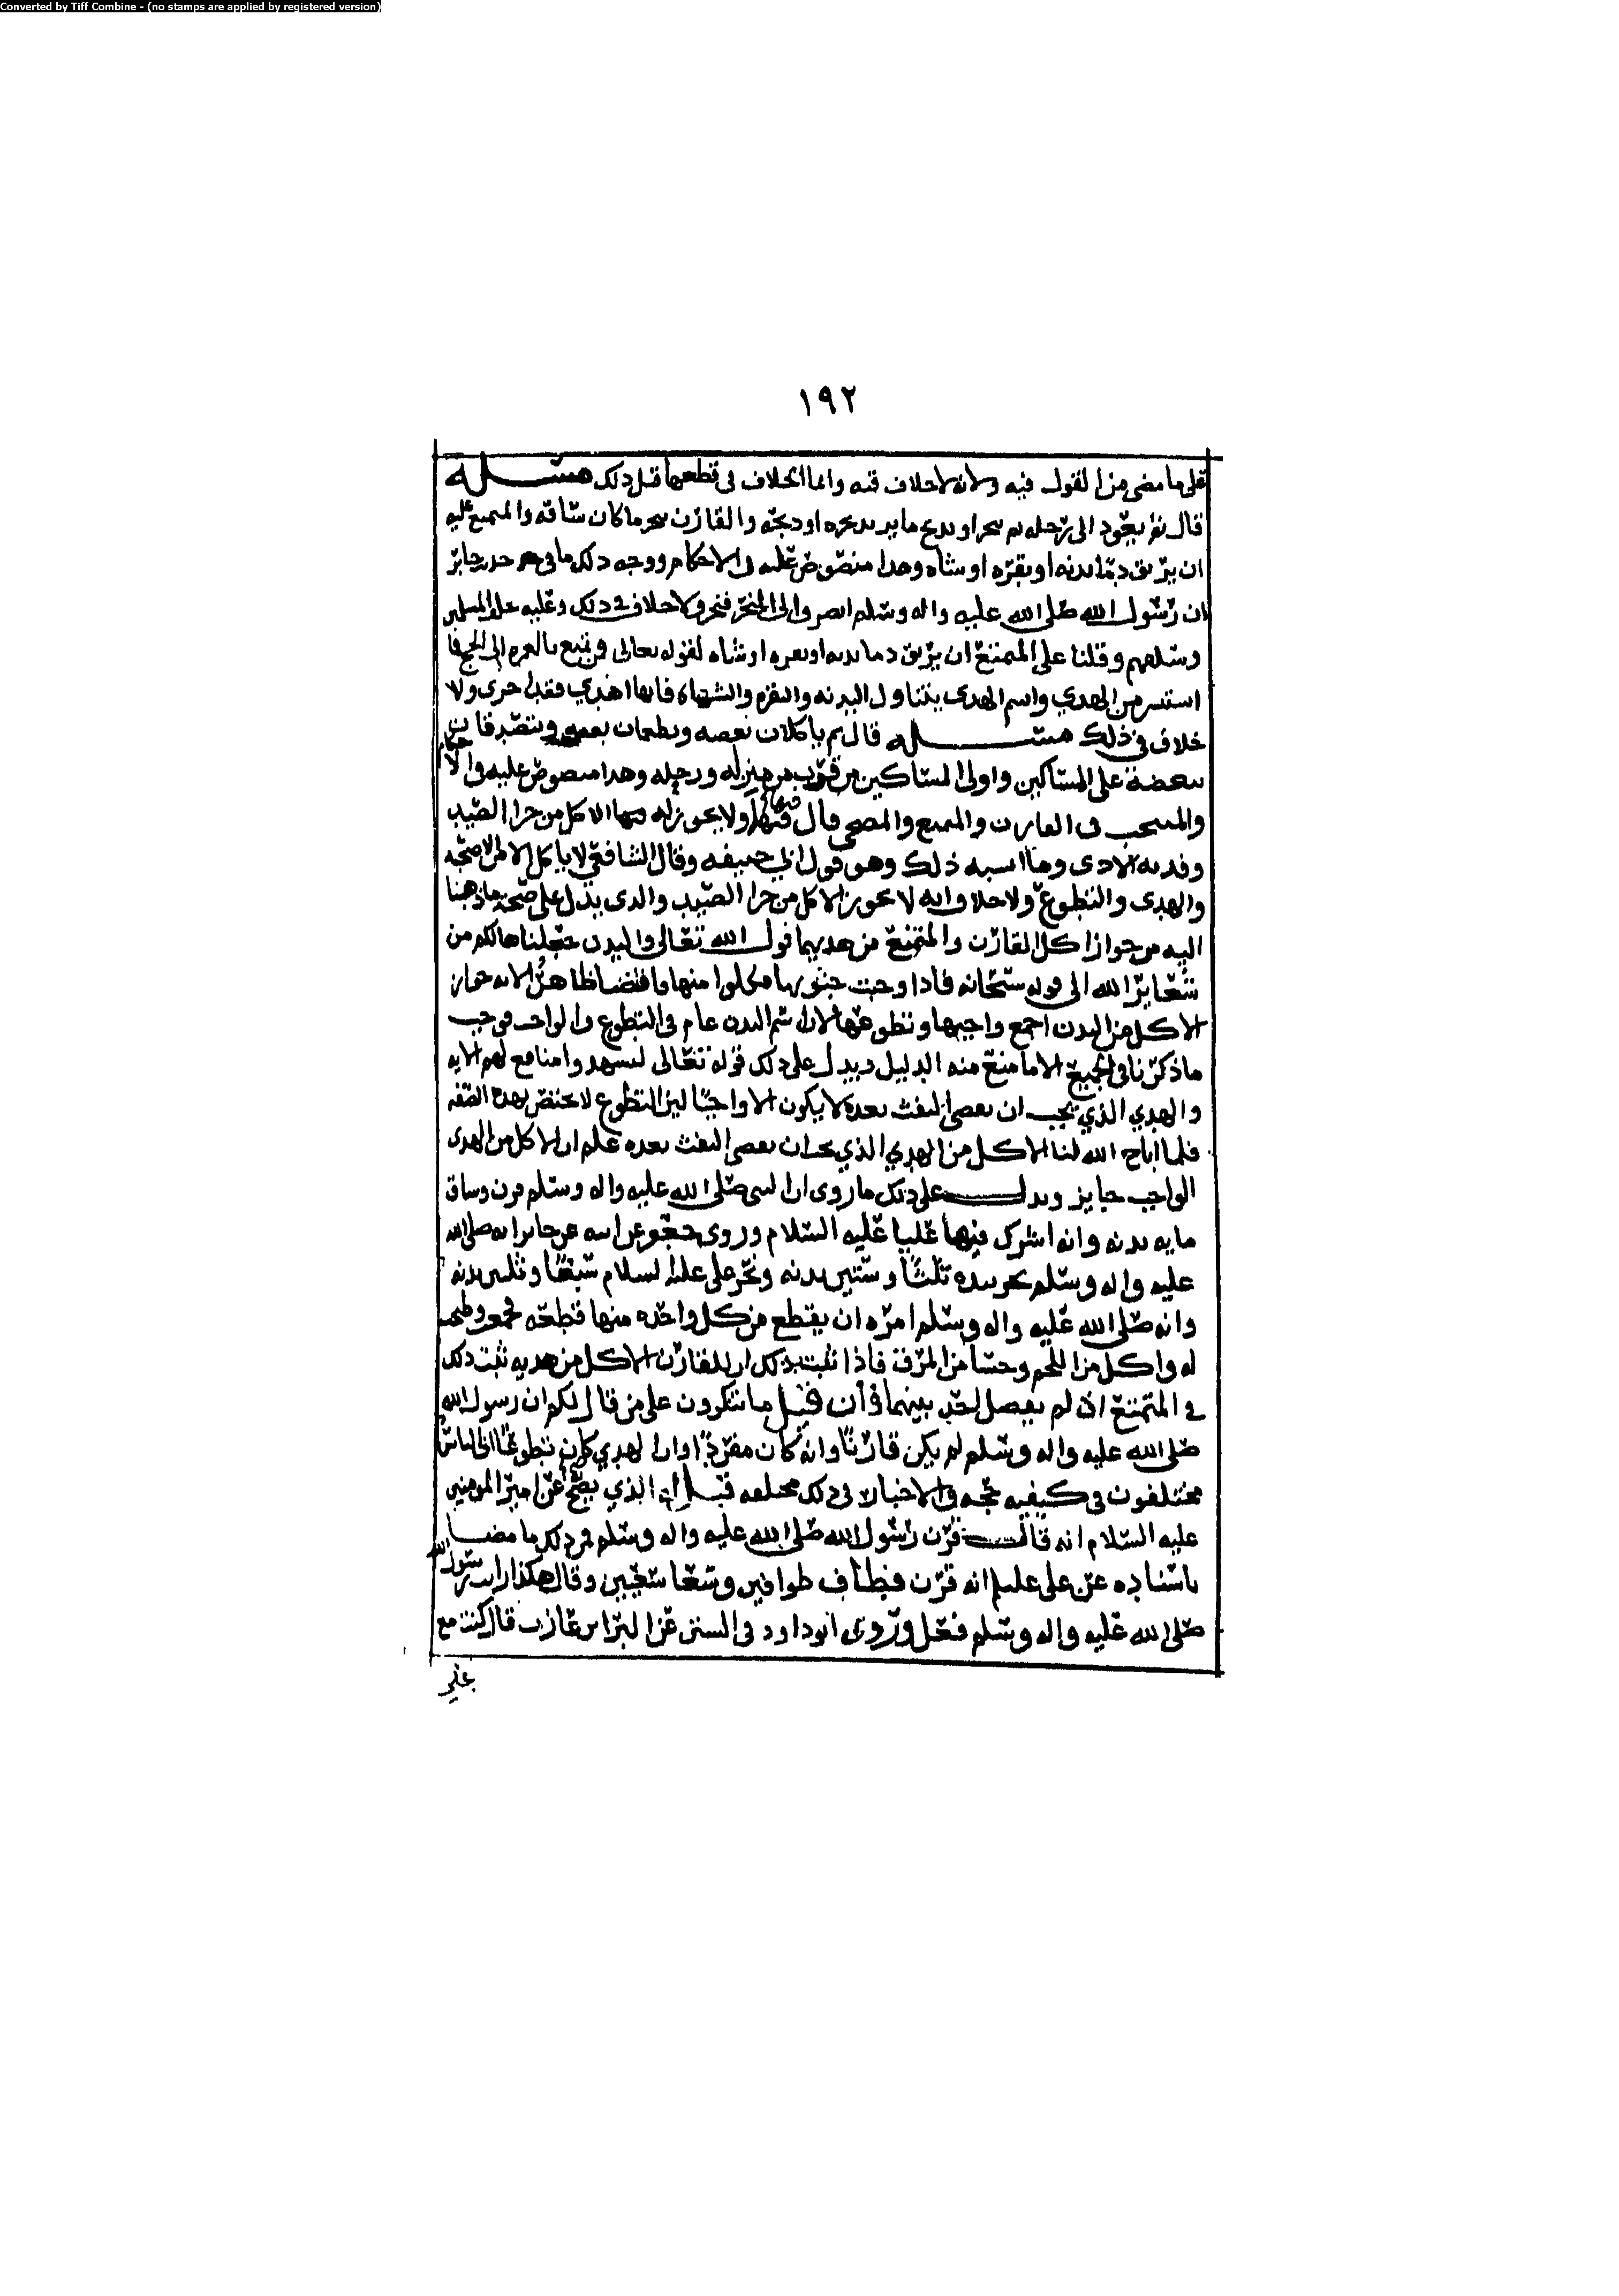 Converted by Tiff Combine - (no stamps are applied by registered version)
١٩٢
على ما مضى من القول فيه ولانه لا خلاف فيه وانما الخلاف في قطعها قبل ذلك مسئله
قال ثم يعود الى رحله ثم ينحر او يذبح ما يريد نحره او ذبحه والقارن ينحر ما كان ساقه والمتمتع عليه
ان يريق دما بدنه او بقره او شاه وهذا منصوص عليه في الاحكام ووجه ذلك ما في حديث جابر
ان رسول الله صلى الله عليه واله وسلم انصرف الى المنحر فنحر ولا خلاف في ذلك وعليه خلف المسلمين
وسلفهم وقلنا على المتمتع ان يريق دما بدنه او بقره او شاه لقوله تعالى فمن تمتع بالعمره الى الحج فما
استيسر من الهدي واسم الهدى يتناول البدنه والبقره والشاه فايها اهدي فقد اجزى ولا
خلاف في ذلك مسئله قال ثم ياكلان بعضه ويطعمان بعضه ويتصدقان
ببعضه على المساكين واولى المساكين من قرب من منزله ورحله وهذا منصوص عليه في الاحكام
والمنتخب في القارن والمتمتع والمضحي قال فيها ولا يجوز له فيهما الاكل من جزا الصيد
وفديه الاذى وما اشبه ذلك وهو قول ابي حنيفه وقال الشافعي لا ياكل الا من الاضحيه
والهدى والتطوع ولا خلاف انه لا يجوز الاكل من جزا الصيد والذى يدل على صحة ما ذهبنا
اليه من جواز اكل القارن والمتمتع من هديهما قول الله تعالى والبدن جعلناها لكم من
شعاير الله الى قوله سبحانه فاذا وجبت جنوبها فكلوا منها فاقتضا ظاهر الايه جواز
الاكل من البدن اجمع واجبها وتطوعها لان اسم البدن عام في التطوع والواجب فوجب
ما ذكرنا في الجميع الا ما منع منه الدليل ويدل على ذلك قوله تعالى ليشهدوا منافع لهم الايه
والهدي الذي يجب ان يقضى التفث بعده لا يكون الا واجبا لان التطوع لا يختص بهذه الصفه
فلما اباح الله لنا الاكل من الهدي الذي يجب ان يقضى التفث بعده علم ان الاكل من الهدى
الواجب جايز ويدل على ذلك ما روى ان النبي صلى الله عليه واله وسلم قرن وساق
مايه بدنه وانه اشرك فيها عليا عليه السلام وروى جعفر عن ابيه عن جابر انه صلى الله
عليه واله وسلم نحر بيده ثلثا وستين بدنه ونحر علي عليه السلام سبعا وثلثين بدنه
وانه صلى الله عليه واله وسلم امره ان يقطع من كل واحده منها قطعه فجمعت وطبخت
له واكل من اللحم وحسا من المرق فاذا ثبت بذلك ان للقارن الاكل من هديه ثبت ذلك
في المتمتع اذ لم يفصل احد بينهما فان قيل ما تنكرون على من قال لكم ان رسول الله
صلى الله عليه واله وسلم لم يكن قارنا وانه كان مفردا وان الهدي كان تطوعا اذ الناس
مختلفون في كيفيه حجه والاخبار في ذلك مختلفه قيل له الذي يصح عن امير المومنين
عليه السلام انه قال قرن رسول الله صلى الله عليه واله وسلم فمن ذلك ما مضى
باسناده عن علي عليلم انه قرن فطاف طوافين وسعا سعيين وقال هكذا رايت رسول الله
صلى الله عليه واله وسلم فعل وروى ابو داود في السنن عن البراء بن عازب قال كنت مع
علي